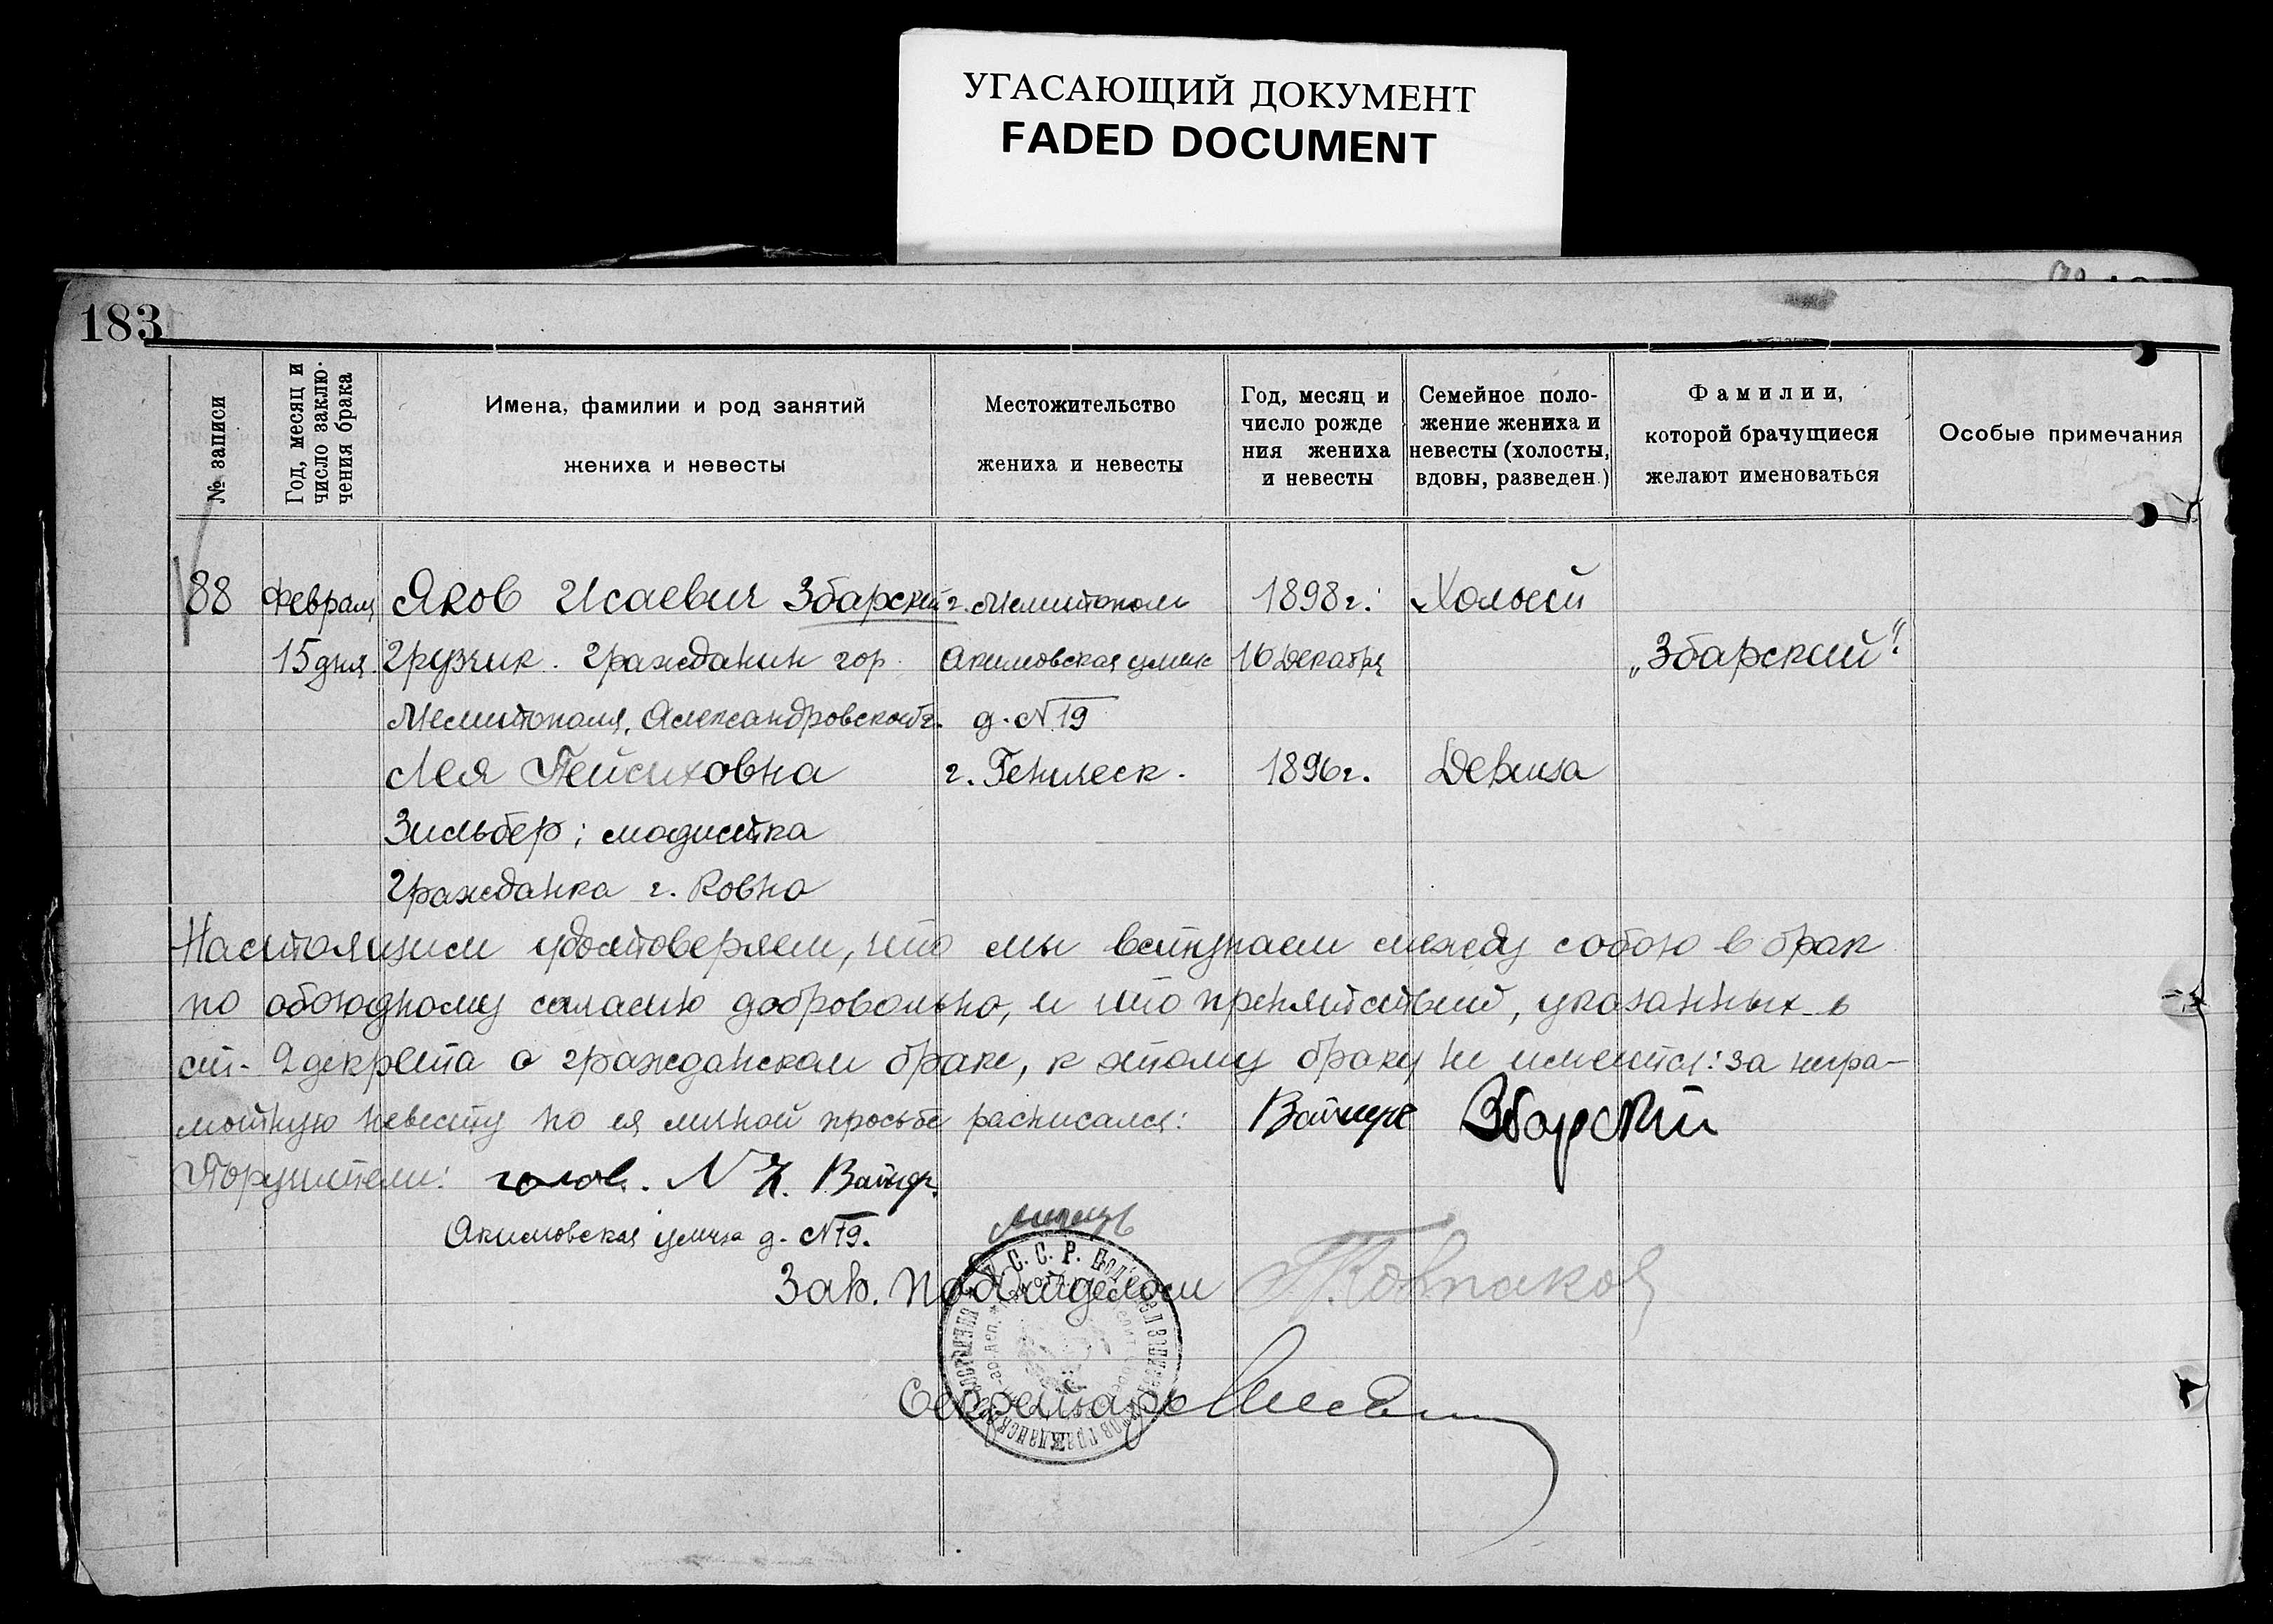 УГАСАЮЩИЙ ДОКУМЕНТ
FADED DOCUMENT
183
№ записи
Год, месяц и
число заклю-
чения брака
Имена, фамилии и род занятий
жениха и невесты
Местожительство
жениха и невесты
Год, месяц и
число рожде
ния жениха
и невесты
Семейное поло-
жение жениха и
невесты (холосты,
вдовы, разведен.)
Фамилии,
которой брачущиеся
желают именоваться
Особые примечания
88 Февраля Яков Исаевич Збарский г. Мелитополь 1898г. Холост
15 дня. Грузчик. Гражданин гор. Акимовская улиц 10 декабря „Збарский"
Мелитополя, Александровской г. д. N 19
Лея Пейсиховна г. Геническ. 1896г. Девица
Зильбер; модистка
Гражданка г. Ровно
Настоящим удостоверяем, что мы вступаем между собою в брак
по обоюдному согласию добровольно, и что препятствий, указанных в
ст. 2 декрета о гражданском браке, к этому браку не имеется: за негра-
мотную невесту по ея личной просьбе расписался: Збарский
Поручители:
Акимовская улица д. N 19.
Зав. подотделом
Секретарь